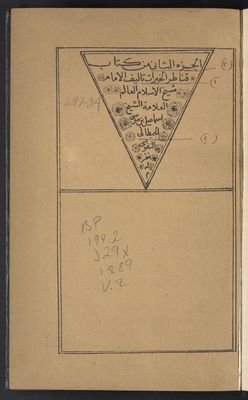 الجزء الثاني من كتاب
قناطر الخيرات تاليف الامام
شيخ الاسلام العالم
العلامة الشيخ
اسماعيل بن موسى
الجيطالي
النفوسي
BP
194.2
J29X
1289
V.2